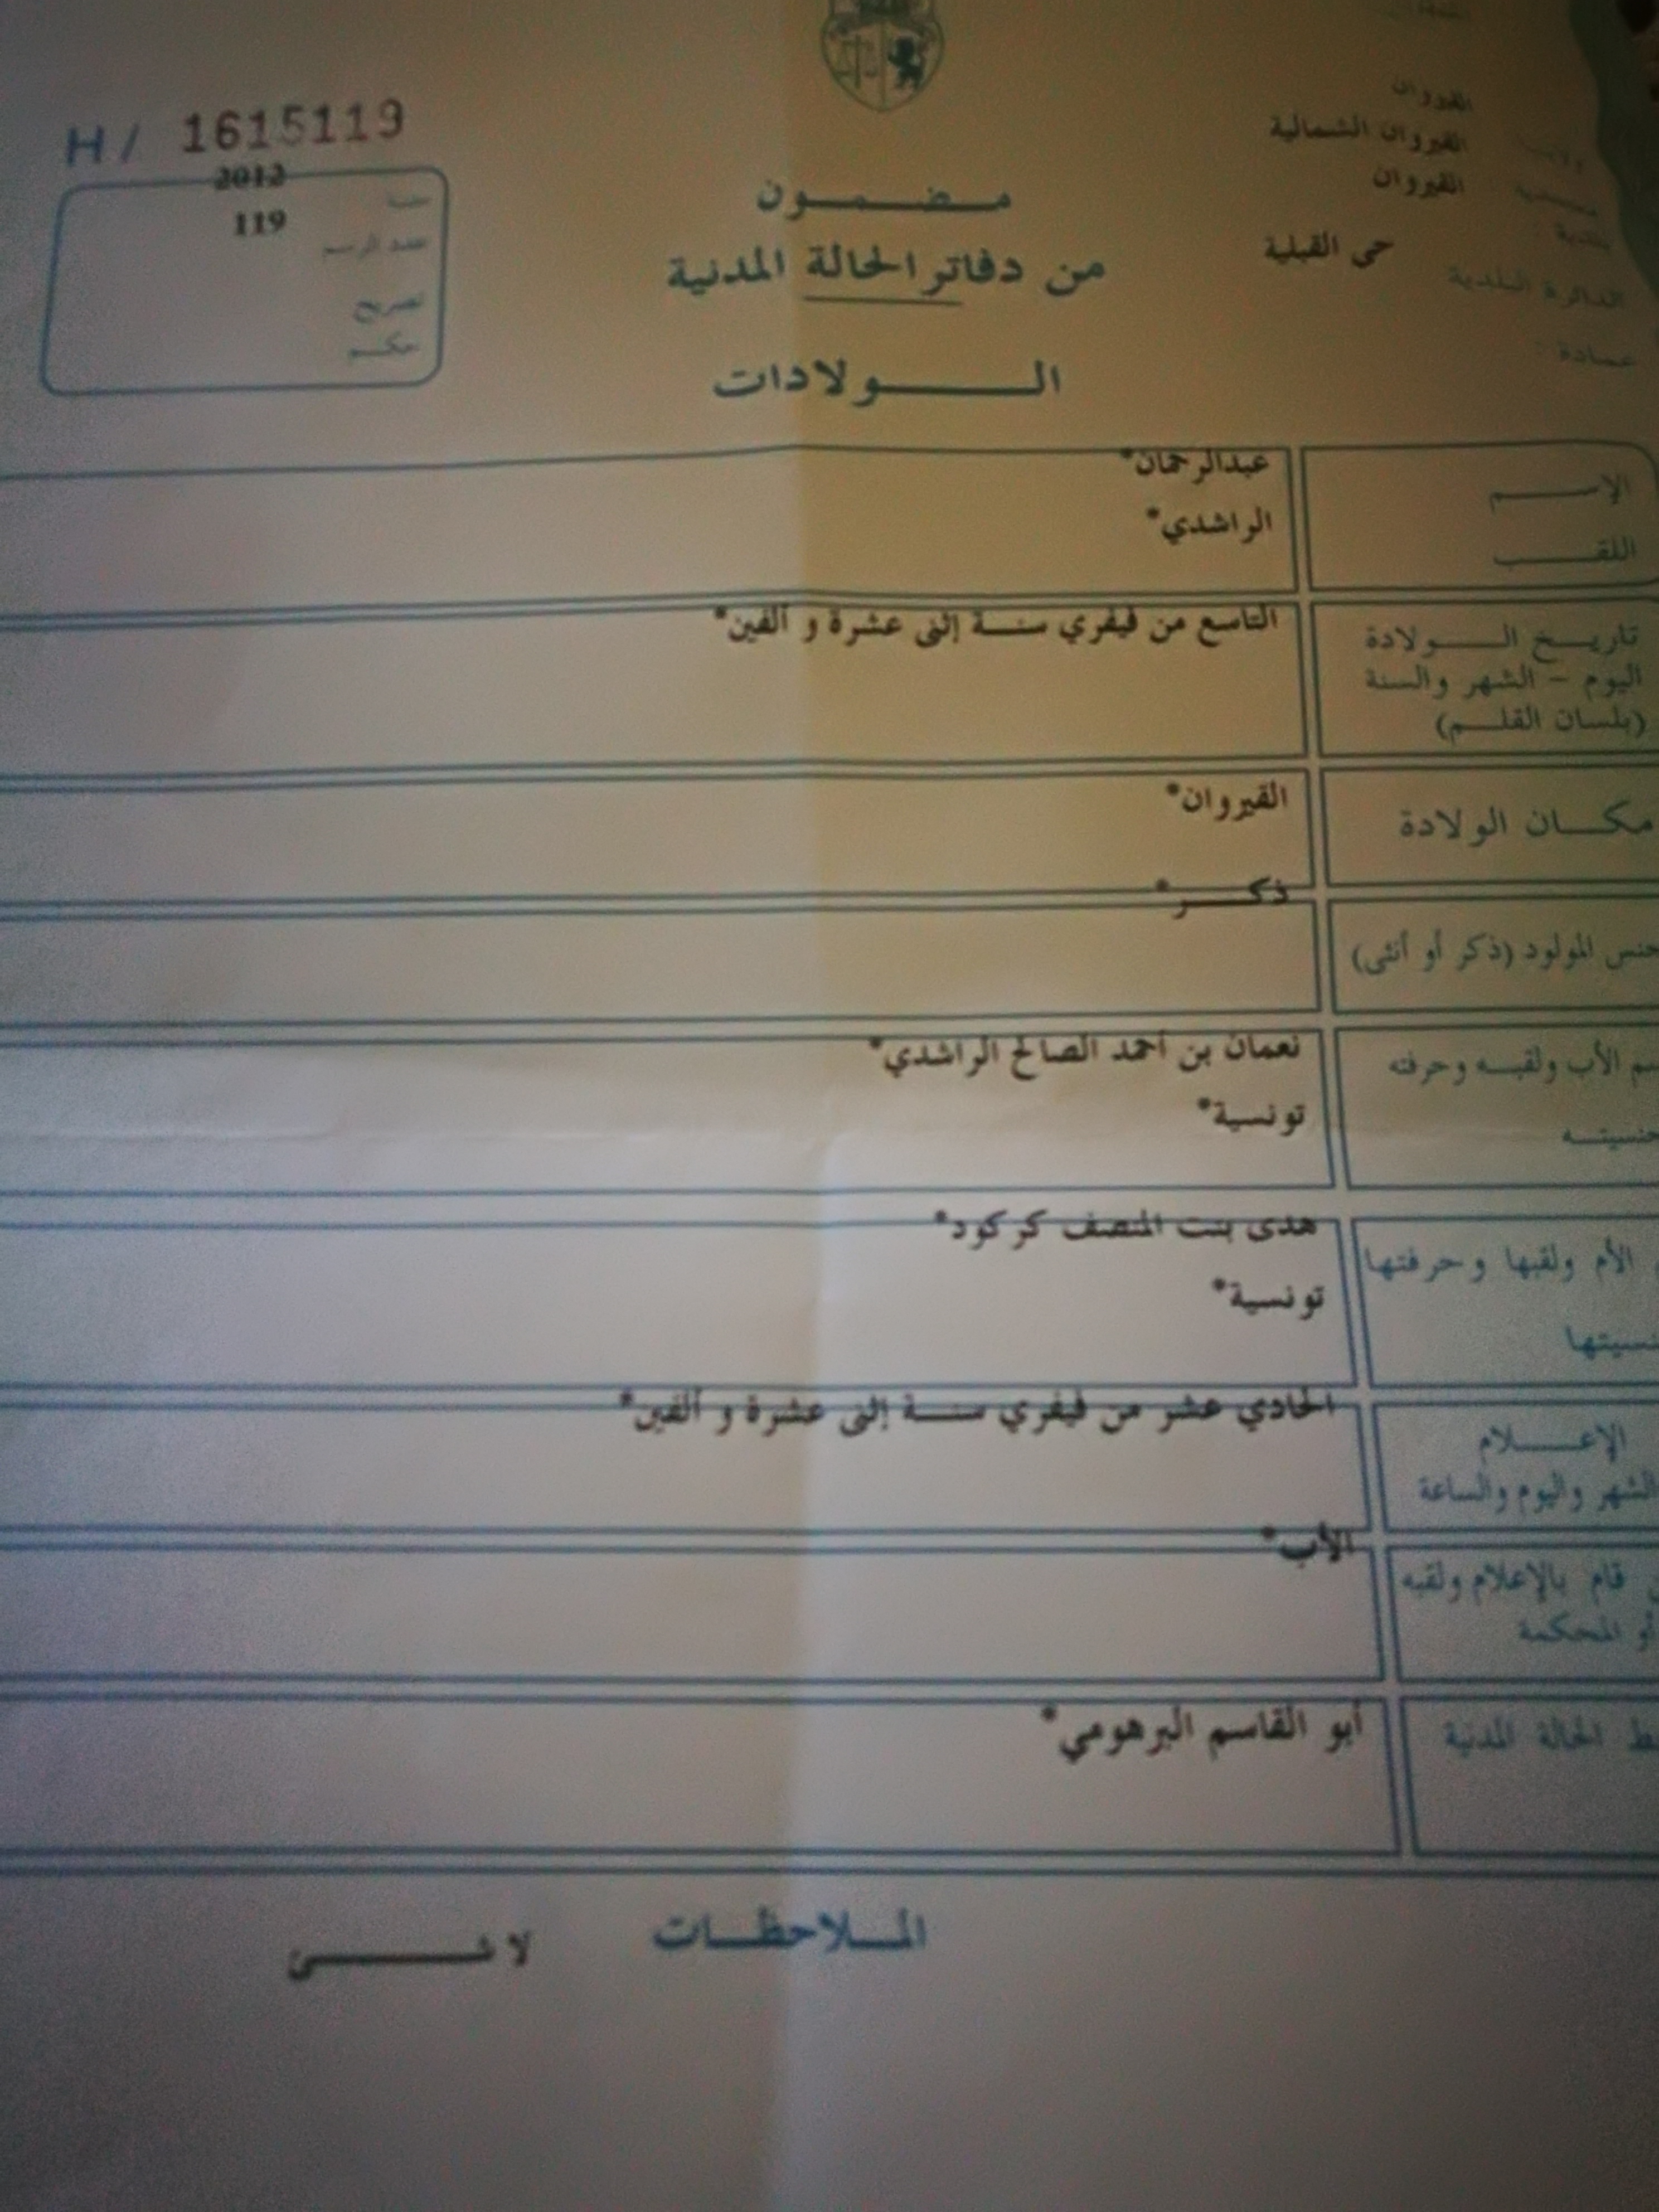 H/ 1615119
القيروان
ولاية
القيروان الشمالية
القيروان
بلدية
حي القبلية
الدائرة البلدية
عمادة :
2012
سنة
119
عدد الرسم
تصريح
حكم
مضمون
من دفاتر الحالة المدنية
الولادات
الإسم
عبدالرحمان*
اللقب
الراشدي*
تاريخ الولادة
اليوم – الشهر والسنة
(بلسان القلم)
التاسع من فيفري سنة إثنى عشرة و ألفين*
مكان الولادة
القيروان*
جنس المولود (ذكر أو أنثى)
ذكر*
الأب ولقبه وحرفته
نعمان بن أحمد الصالح الراشدي*
تونسية*
الأم ولقبها وحرفتها
هدى بنت المنصف كركود*
تونسية*
الإعلام
الشهر واليوم والساعة
الحادي عشر من فيفري سنة إثنى عشرة و ألفين*
قام بالإعلام ولقبه
أو المحكمة
الأب*
الحالة المدنية
أبو القاسم البرهومي*
الملاحظات
لا شئ